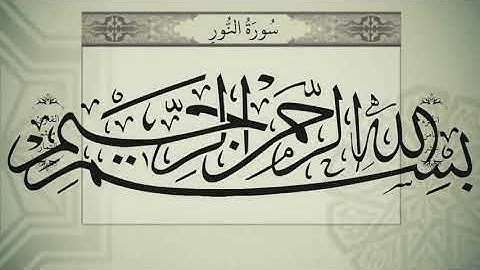 سُورَةُ النُّورِ
بسم الله الرحمن الرحيم